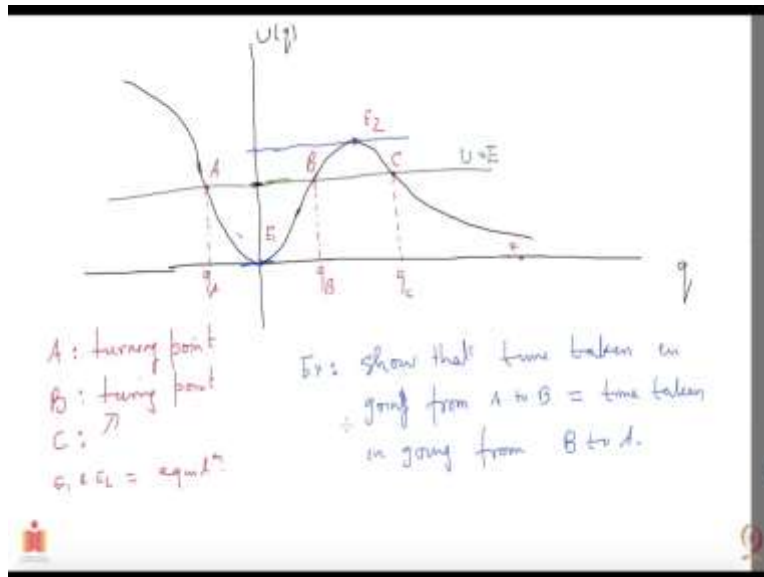 U(q)
E2
A
B
C
U=E
E1
qA
qB
qC
q
A : turning point
B : turing point
C : ↗
E1 & E2 = equilm
Ex : Show that time taken in
going from A to B = time taken
in going from B to A.